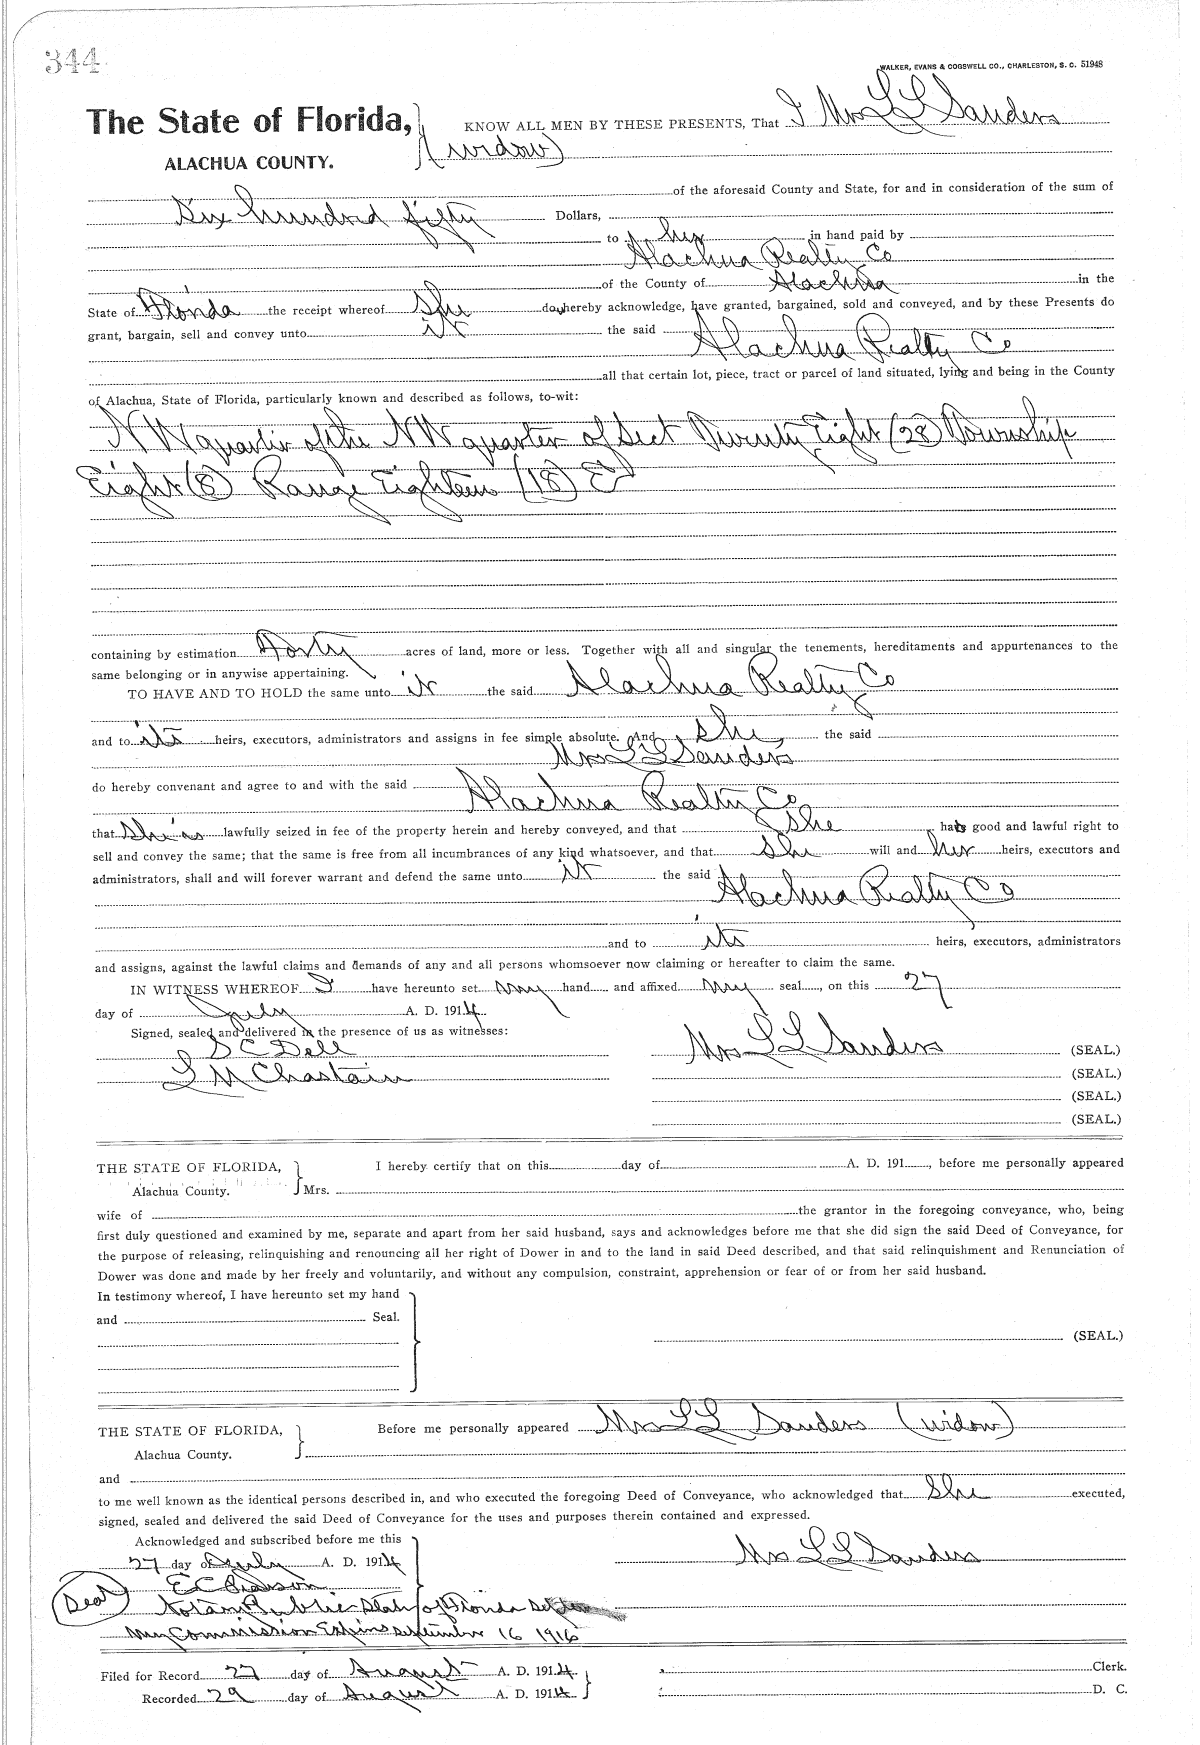 344
WALKER, EVANS & COGSWELL CO., CHARLESTON, S. C. 51948
The State of Florida, KNOW ALL MEN BY THESE PRESENTS, That I Mrs L L Sanders
ALACHUA COUNTY. (widow)
of the aforesaid County and State, for and in consideration of the sum of
Six hundred fifty Dollars,
to her in hand paid by
Alachua Realty Co
of the County of Alachua in the
State of Florida the receipt whereof she do hereby acknowledge, have granted, bargained, sold and conveyed, and by these Presents do
grant, bargain, sell and convey unto it the said Alachua Realty Co
all that certain lot, piece, tract or parcel of land situated, lying and being in the County
of Alachua, State of Florida, particularly known and described as follows, to-wit:
N W quarter of the N W quarter of Sect Twenty Eight (28) Township
Eight (8) Range Eighteen (18) E
containing by estimation Forty acres of land, more or less. Together with all and singular the tenements, hereditaments and appurtenances to the
same belonging or in anywise appertaining.
TO HAVE AND TO HOLD the same unto it the said Alachua Realty Co
and to its heirs, executors, administrators and assigns in fee simple absolute. And she, the said
Mrs L L Sanders
do hereby convenant and agree to and with the said Alachua Realty Co
that she is lawfully seized in fee of the property herein and hereby conveyed, and that she has good and lawful right to
sell and convey the same; that the same is free from all incumbrances of any kind whatsoever, and that she will and her heirs, executors and
administrators, shall and will forever warrant and defend the same unto it the said Alachua Realty Co
and to its heirs, executors, administrators
and assigns, against the lawful claims and demands of any and all persons whomsoever now claiming or hereafter to claim the same.
IN WITNESS WHEREOF I have hereunto set my hand and affixed my seal, on this 27
day of July A. D. 1914.
Signed, sealed and delivered in the presence of us as witnesses:
S C Dell Mrs L L Sanders (SEAL.)
L M Chastain (SEAL.)
(SEAL.)
(SEAL.)
THE STATE OF FLORIDA, I hereby certify that on this day of A. D. 191, before me personally appeared
Alachua County. Mrs.
wife of the grantor in the foregoing conveyance, who, being
first duly questioned and examined by me, separate and apart from her said husband, says and acknowledges before me that she did sign the said Deed of Conveyance, for
the purpose of releasing, relinquishing and renouncing all her right of Dower in and to the land in said Deed described, and that said relinquishment and Renunciation of
Dower was done and made by her freely and voluntarily, and without any compulsion, constraint, apprehension or fear of or from her said husband.
In testimony whereof, I have hereunto set my hand
and Seal.
(SEAL.)
THE STATE OF FLORIDA, Before me personally appeared Mrs L L Sanders (widow)
Alachua County.
and
to me well known as the identical persons described in, and who executed the foregoing Deed of Conveyance, who acknowledged that she executed,
signed, sealed and delivered the said Deed of Conveyance for the uses and purposes therein contained and expressed.
Acknowledged and subscribed before me this
27 day of July A. D. 1914 Mrs L L Sanders
E C
(Seal) Notary Public State of Florida
My Commission Expires September 16 1916
Filed for Record 27 day of August A. D. 1914. Clerk.
Recorded 29 day of August A. D. 1914 D. C.